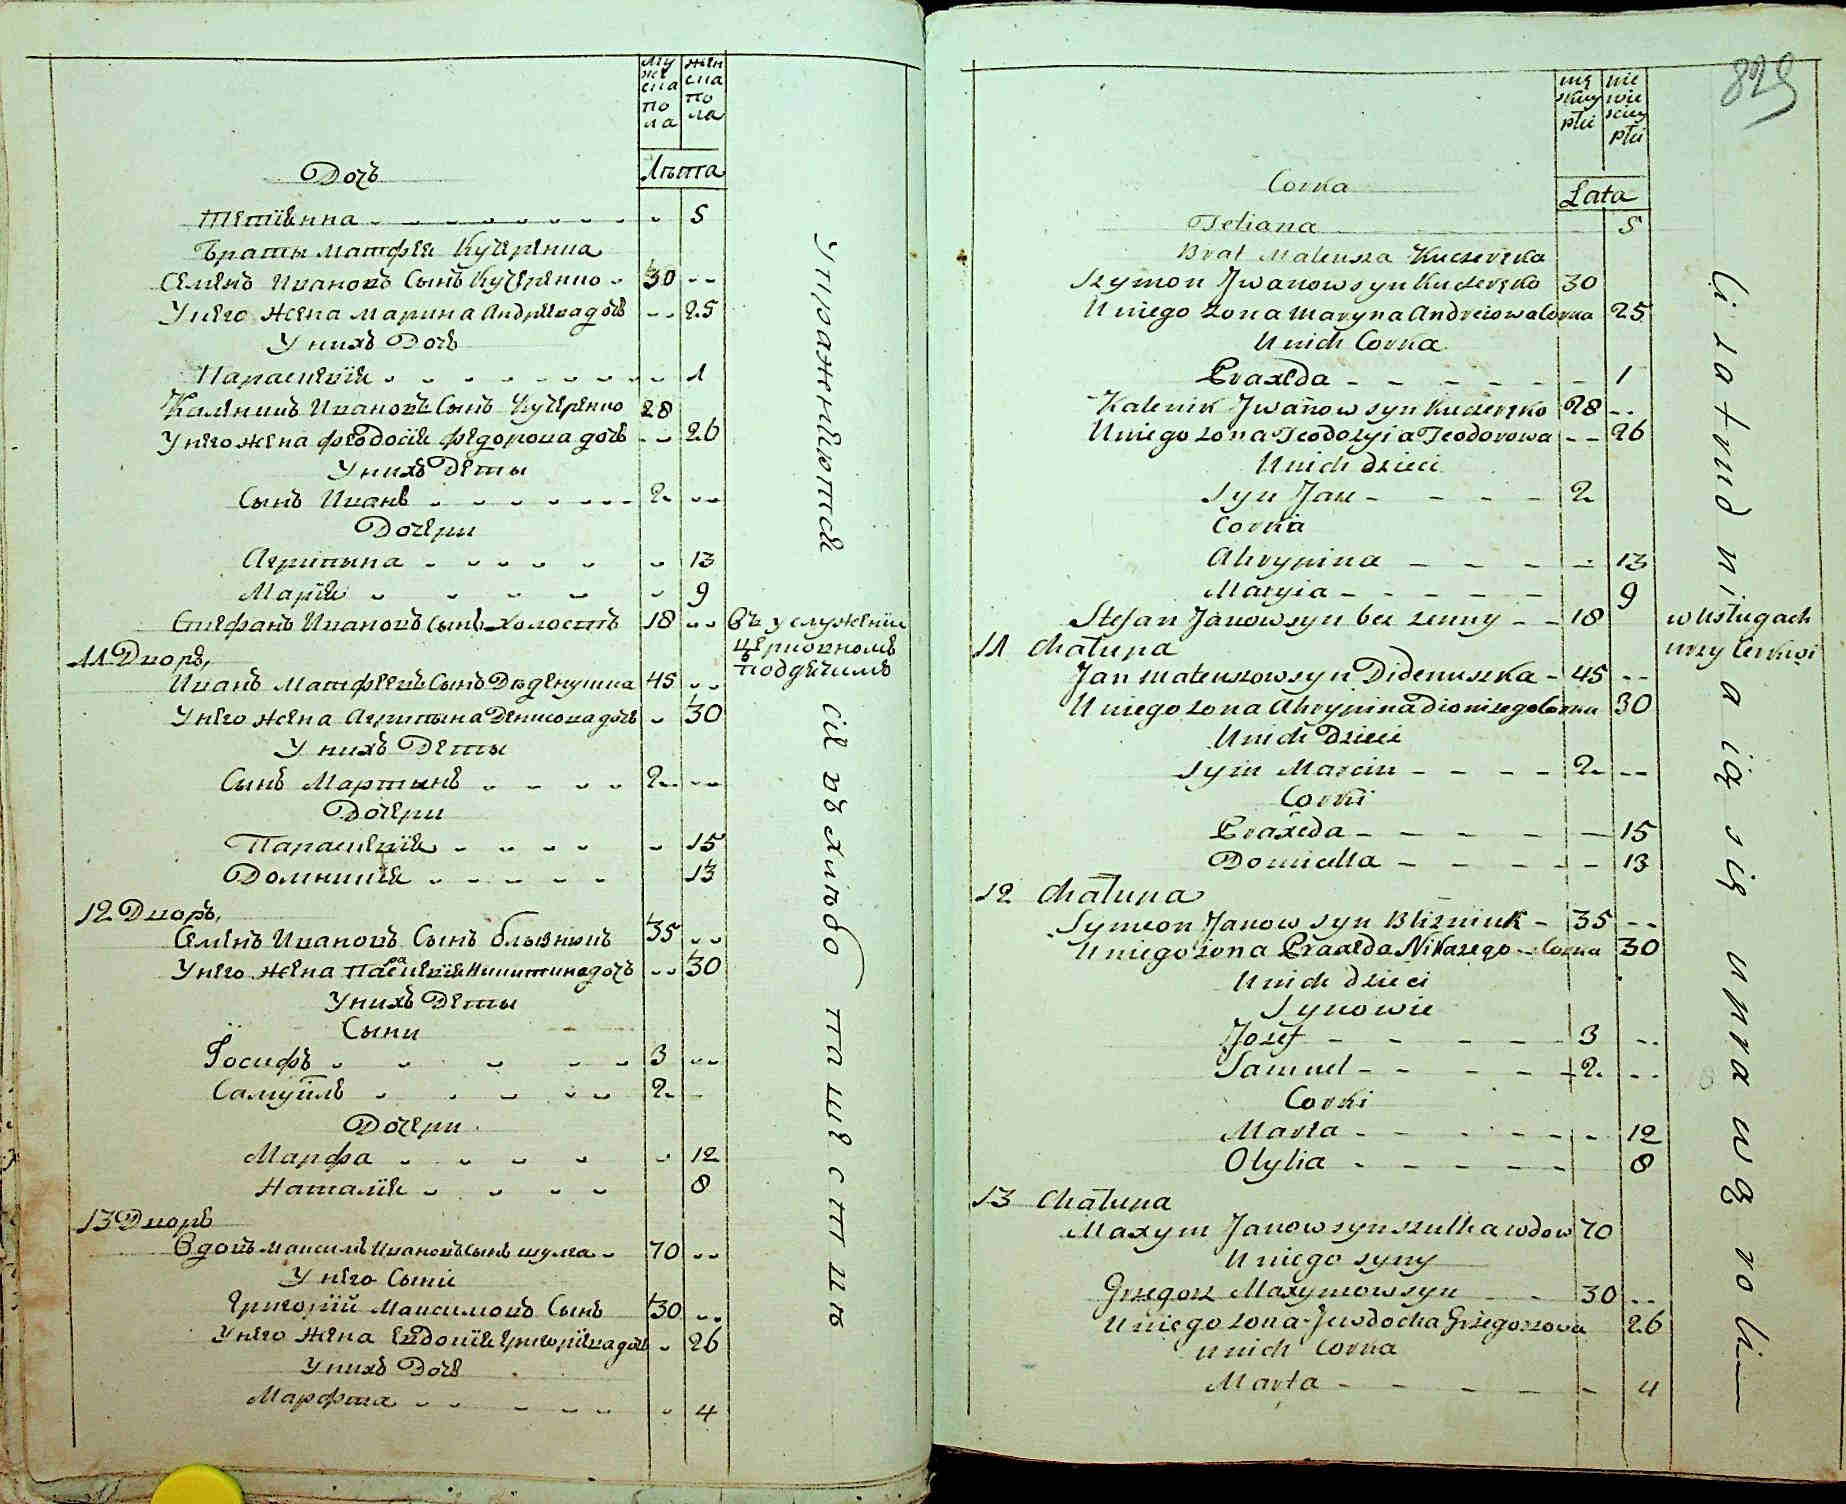 Му
же
ска
по
ла
жен
ска
по
ла
Лѣта
Дочъ
Тетіѣнна 5
Братъ Матфея Кучеренка
Семенъ Ивановъ Сынъ Кучеренко 30
У него Жена Марина Андреева дочь 25
У нихъ Дочь
Параскевія 1
Каленикъ Ивановъ Сынъ Кучеренко 28
У него жена Феодосія Федорова дочь 26
У нихъ Дети
Сынъ Иванъ 2
Дочери
Агрипына 13
Марія 9
Стефанъ Ивановъ Сынъ Холостъ 18
въ услуженіи
11 Дворъ,
Иванъ Матфеевъ Сынъ Дѣденушка 45
У него жена Агрипына Денисова дочь 30
У нихъ Деты
Сынъ Мартынъ 2
Дочери
Параскевія 15
Домникія 13
12 Дворъ,
Семенъ Ивановъ Сынъ Близнюкъ 35
У него жена Параскевія Никитина дочь 30
У нихъ Деты
Сыни
Іосифъ 3
Самуилъ 2
Дочери
Марфа 12
Наталія 8
13 Дворъ
Вдовъ Максимъ Ивановъ Сынъ Шулга 70
У него Сыны
Григорій Максимовъ Сынъ 30
У него жена Евдокія Григоріева дочь 26
У нихъ Дочь
Марфта 4
Упражняются сіи въ хлѣбопашествѣ
829
męskiey
płci
niewiesciey
płci
Lata
Corka
Tetiana 5
Brat Mateusza Kuczereka
Szymon Jwanow syn Kuczeręko 30
U niego zona Maryna Andreiowa Corka 25
U nich Corka
Praxeda 1
Kalenik Jwanow syn Kuczeręko 28
U niego zona Teodozyia Teodorowa 26
U nich dzieci
Syn Jan 2
Corkia
Ahrypina 13
Maryia 9
Stefan Janow syn bez zenny 18
w Usługach
przy Cerkwi
11 Chałupa
Jan Mateuszow syn Didenuszka 45
U niego zona Ahrypina Dionizego Corka 30
U nich Dzieci
Syn Marcin 2
Corki
Praxeda 15
Domicella 13
12 Chałupa
Symeon Janow syn Blizniuk 35
U niego żona Praxeda Nikazego Corka 30
U nich dzieci
Synowie
Jozef 3
Samuel 2
Corki
Marta 12
Otylia 8
13 Chałupa
Maxym Janow syn szulha wdow 70
U niego syny
Grzegorz Maxymow syn 30
U niego zona Jewdocha Grzegorzowa 26
U nich Corka
Marta 4
Ci zatrudniaią się uprawą roli